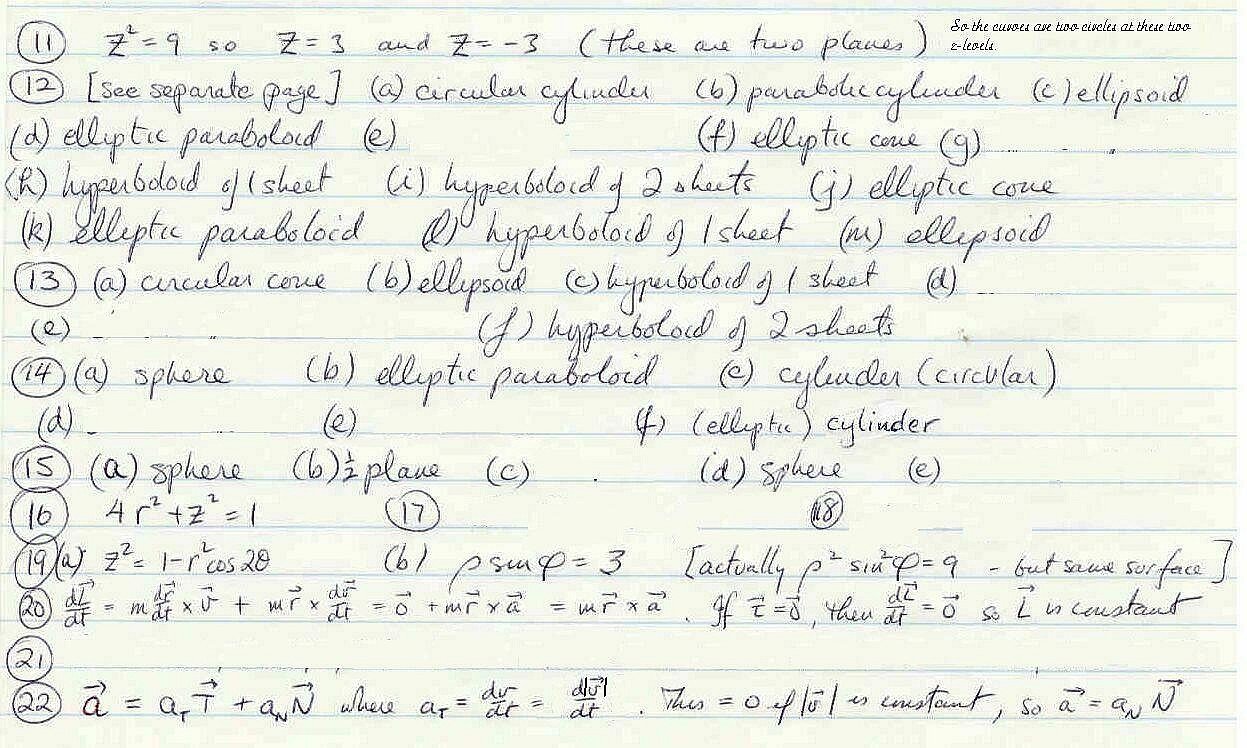 (11) z² = 9 so z = 3 and z = -3 (these are two planes) So the curves are two circles at these two z-levels.
(12) [see separate page] (a) circular cylinder (b) parabolic cylinder (c) ellipsoid
(d) elliptic paraboloid (e) (f) elliptic cone (g)
(h) hyperboloid of 1 sheet (i) hyperboloid of 2 sheets (j) elliptic cone
(k) elliptic paraboloid (l) hyperboloid of 1 sheet (m) ellipsoid
(13) (a) circular cone (b) ellipsoid (c) hyperboloid of 1 sheet (d)
(e) (f) hyperboloid of 2 sheets
(14) (a) sphere (b) elliptic paraboloid (c) cylinder (circular)
(d) (e) (f) (elliptic) cylinder
(15) (a) sphere (b) ½ plane (c) (d) sphere (e)
(16) 4r² + z² = 1 (17) (18)
(19) (a) z² = 1 - r² cos 2θ (b) ρ sin φ = 3 [actually ρ² sin² φ = 9 - but same surface]
(20) dL⃗/dt = m dr⃗/dt × v⃗ + m r⃗ × dv⃗/dt = 0⃗ + m r⃗ × a⃗ = m r⃗ × a⃗. If τ⃗ = 0⃗, then dL⃗/dt = 0⃗ so L⃗ is constant
(21)
(22) a⃗ = a_T T⃗ + a_N N⃗ where a_T = dv/dt = d|v⃗|/dt. This = 0 if |v⃗| is constant, so a⃗ = a_N N⃗